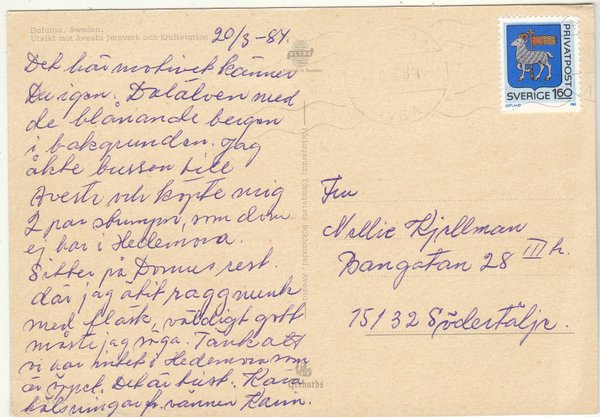 Dalarna, Sweden.
Utsikt mot Avesta Jernverk och Kraftstation
20/3-84.
Det här motivet känner
Du igen. Dalälven med
de blånande bergen
i bakgrunden. Jag
åkte bussen till
Avesta och köpte mig
2 par strumpor, som dom
ej har i Hedemora.
Sitter på Domus rest.
där jag ätit raggmunk
med fläsk, väldigt gott
måste jag säga. Tänk att
vi har inget i Hedemora som
är öppet. Det är trist. Kära
hälsningar fr. vännen Karin.
ULTRA
PRIVATPOST
SVERIGE 160
GOTLAND
Fru
Nellie Kjellman
Bangatan 28 III tr.
151 32 Södertälje.